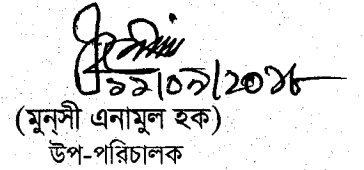 ১১/০৯/২০১৮
(মুন্‌সী এনামুল হক)
উপ-পরিচালক